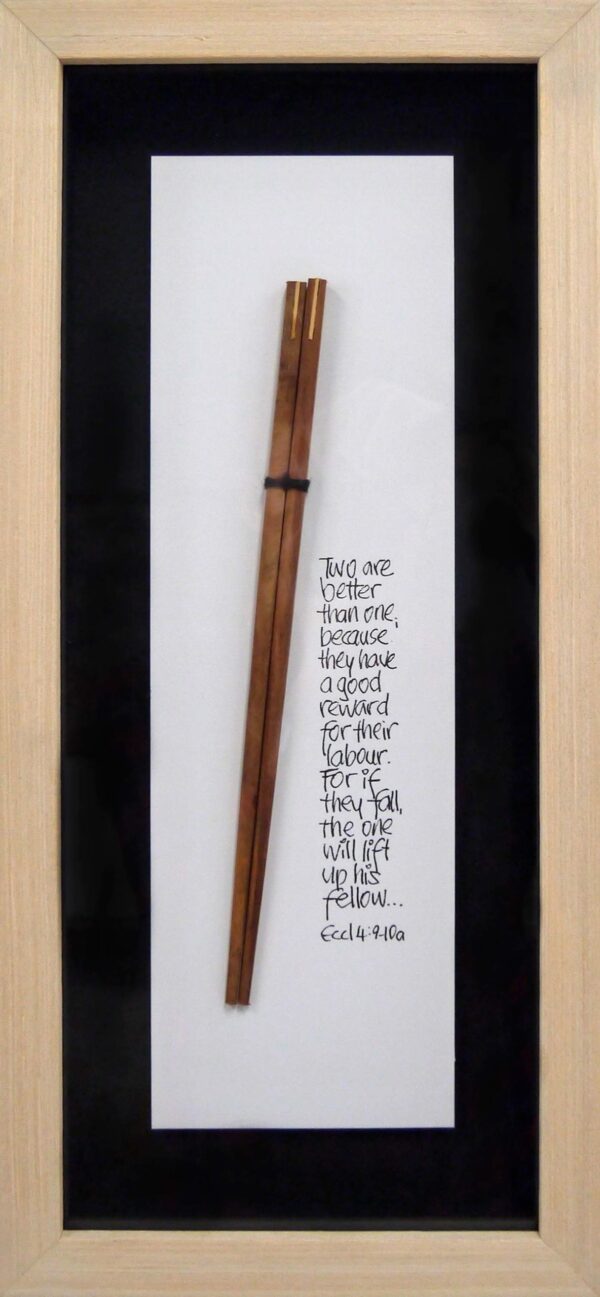 Two are
better
than one,
because
they have
a good
reward
for their
labour.
For if
they fall,
the one
will lift
up his
fellow...
Eccl 4:9-10a